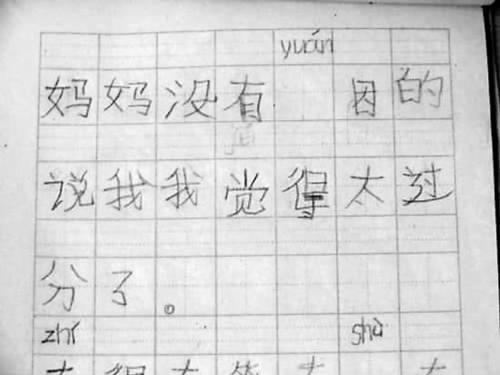 yuán
妈妈没有 因的
说我我觉得太过
分了。
zhí shù